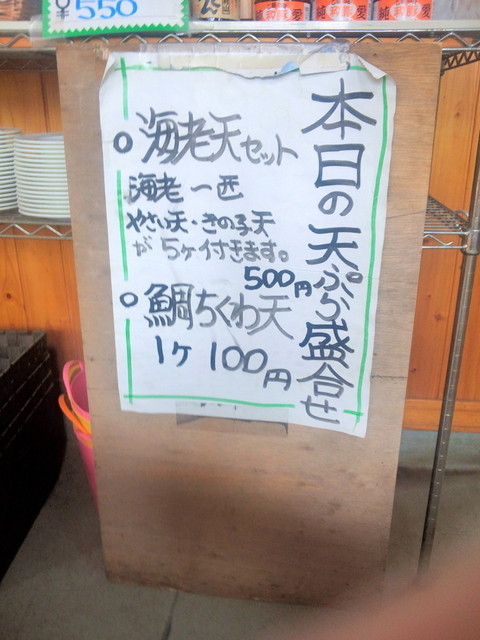 ¥550
本日の天ぷら盛合せ
海老天セット
海老 一匹
やさい天・きの子天
が 5ヶ付きます。
500円
鯛ちくわ天
1ヶ 100円